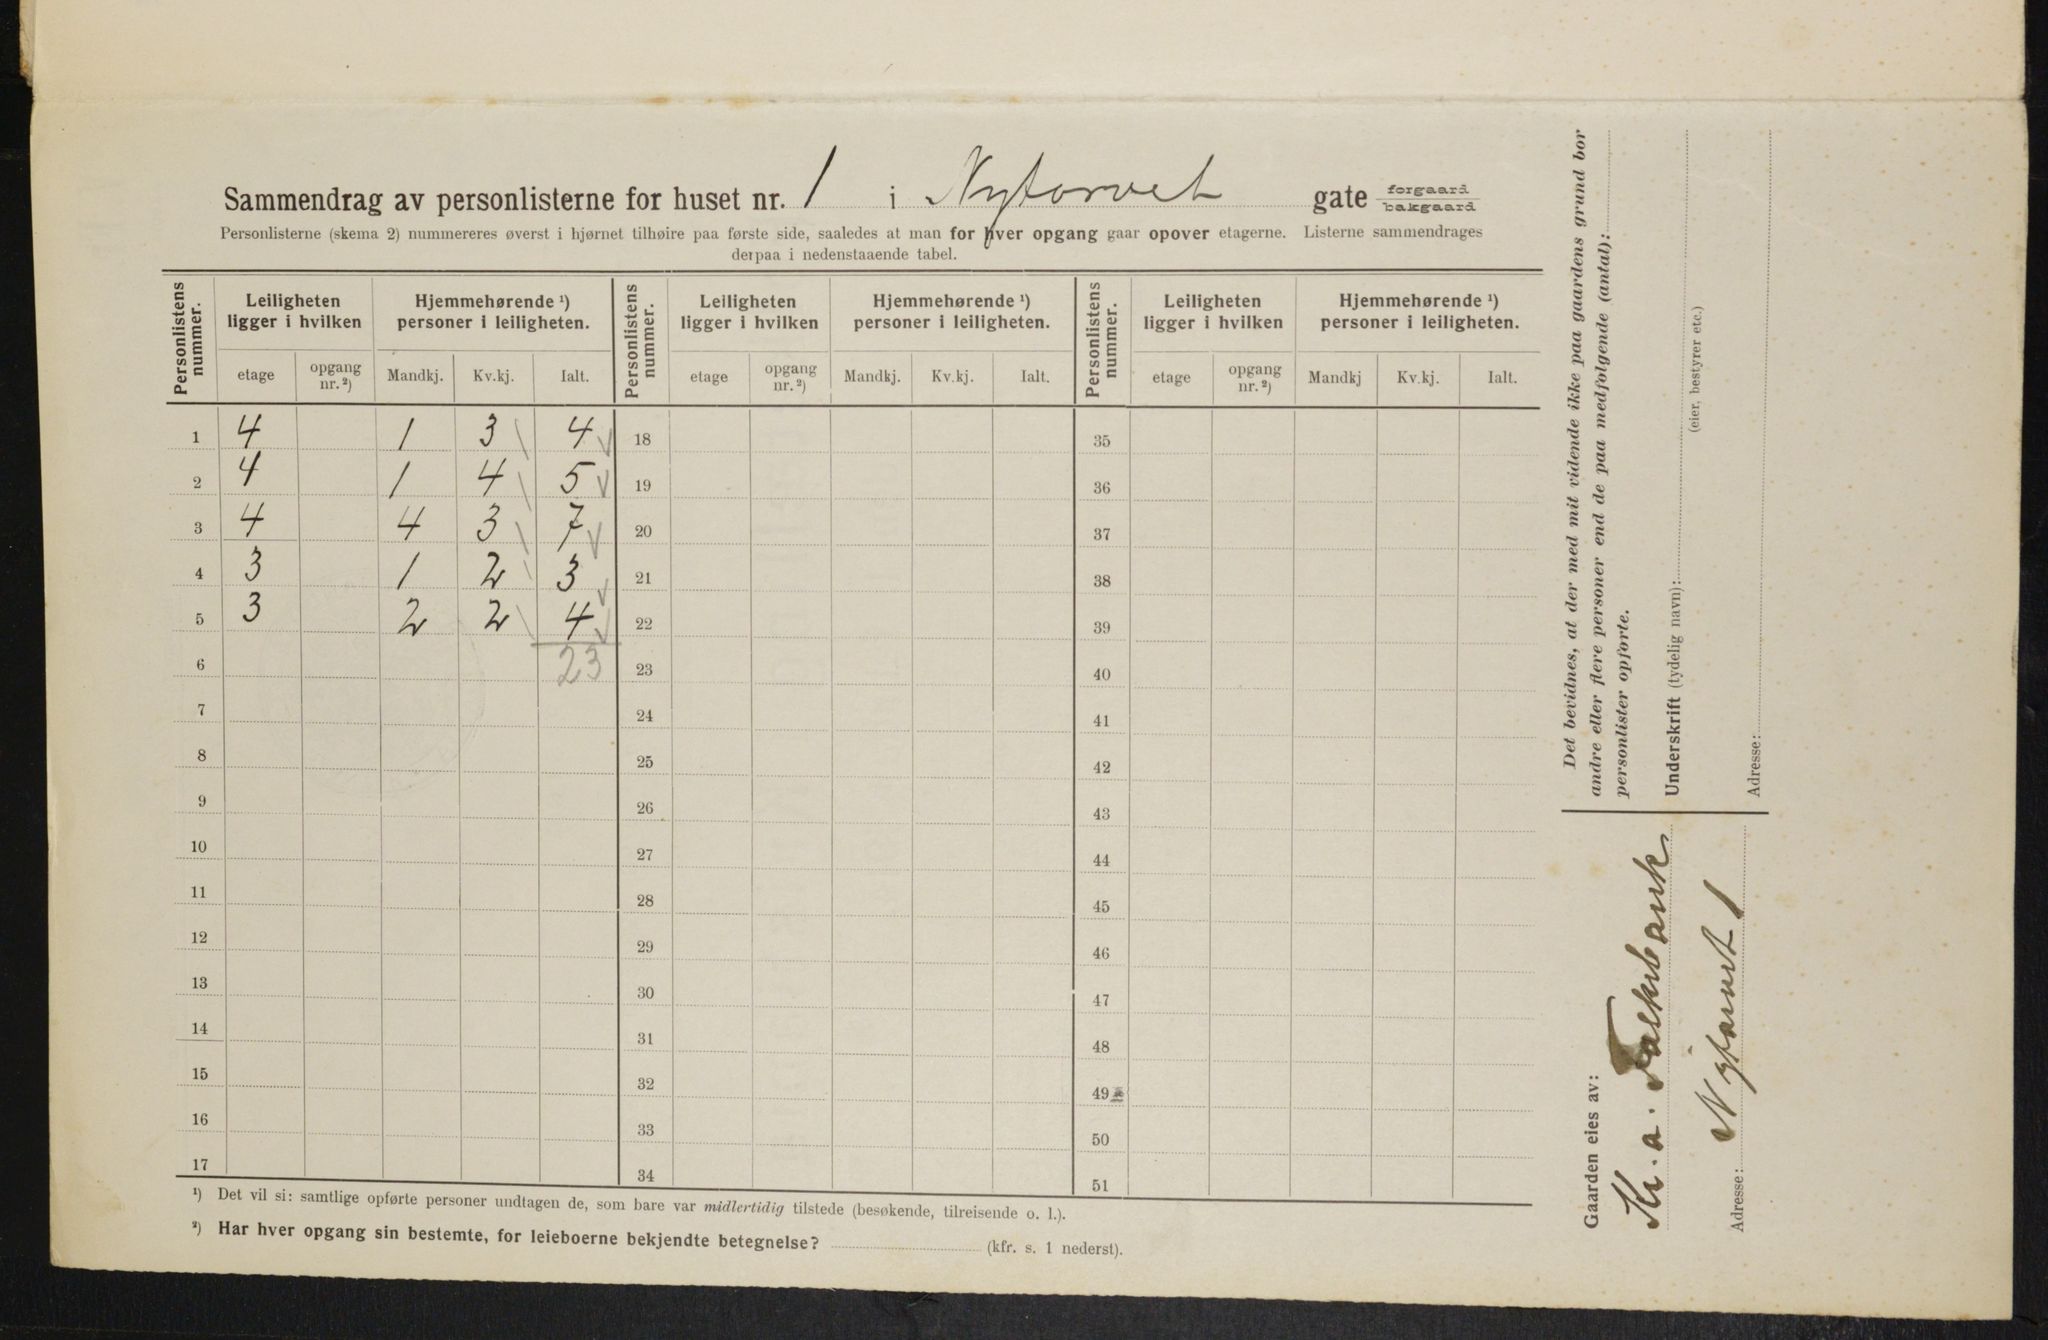 Sammendrag av personlisterne for huset nr. 1 i Nytorvet gate forgaard bakgaard
Personlisterne (skema 2) nummereres øverst i hjørnet tilhøire paa første side, saaledes at man for hver opgang gaar opover etagerne. Listerne sammendrages
derpaa i nedenstaaende tabel.
Personlistens nummer. Leiligheten ligger i hvilken Hjemmehørende ¹) personer i leiligheten. Personlistens nummer. Leiligheten ligger i hvilken Hjemmehørende ¹) personer i leiligheten. Personlistens nummer. Leiligheten ligger i hvilken Hjemmehørende ¹) personer i leiligheten.
etage opgang nr. ²) Mandkj. Kv.kj. Ialt. etage opgang nr. ²) Mandkj. Kv.kj. Ialt. etage opgang nr. ²) Mandkj Kv.kj. Ialt.
1 4 1 3 4 18 35
2 4 1 4 5 19 36
3 4 4 3 7 20 37
4 3 1 2 3 21 38
5 3 2 2 4 22 39
6 23 23 40
7 24 41
8 25 42
9 26 43
10 27 44
11 28 45
12 29 46
13 30 47
14 31 48
15 32 49
16 33 50
17 34 51
¹) Det vil si: samtlige opførte personer undtagen de, som bare var midlertidig tilstede (besøkende, tilreisende o. l.).
²) Har hver opgang sin bestemte, for leieboerne bekjendte betegnelse? (kfr. s. 1 nederst).
Det bevidnes, at der med mit vidende ikke paa gaardens grund bor
andre eller flere personer end de paa medfølgende (antal):
personlister opførte.
Underskrift (tydelig navn):
(eier, bestyrer etc.)
Adresse:
Gaarden eies av:
Kr. a. Falkbank
Adresse: Nytorvet 1